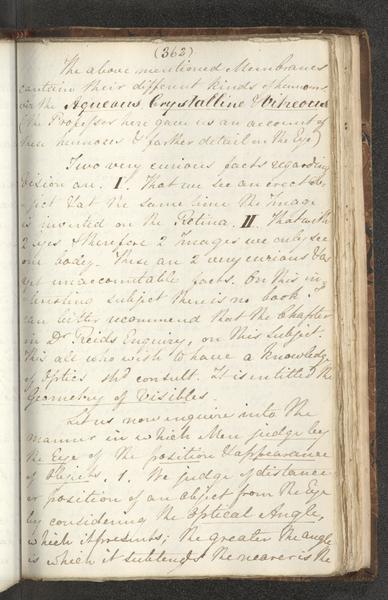 (362)
The above mentioned Membranes
contain their different kinds of humours,
viz the Aqueous Crystalline & Vitreous
(the Professor here gave us an account of
these humours & farther detail on the Eye)
Two very curious facts regarding
vision are. I. That we see an erect ob-
-ject & at the same time the Image
is inverted on the Retina. II. That with
2 eyes & therefore 2 Images we only see
one body. These are 2 very curious & as
yet unaccountable facts. On this in-
teresting subject there is no book I
can better recommend that the Chapter
in Dr Reids Enquiry, on this Subject.
This all who wish to have a knowledge
of Optics shd consult. It is entitled the
Geometry of Visibles.
Let us now enquire into the
manner in which Men judge by
the Eye of the position & appearance
of Objects. 1. We judge of distance
or position of an object from the Eye
by considering the Optical Angle,
which it presents; the greater the angle
is which it subtends the nearer is the